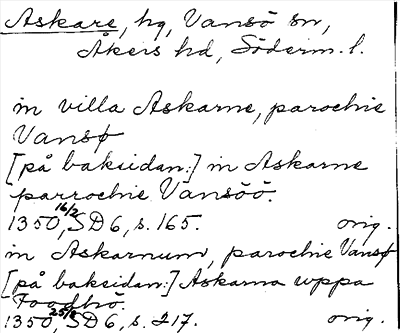 Askare, hg, Vansö sn,
Åkers hd, Söderm. l.
in villa Askarne, parochie
Vansø
[på baksidan:] in Askarne
parrochie Vansöö.
1350 16/2, SD 6, s. 165. orig.
in Askarnum, parochie Vansø
[på baksidan:] Askarna uppa
Foodhö
1350 25/8, SD 6, s. 217. orig.